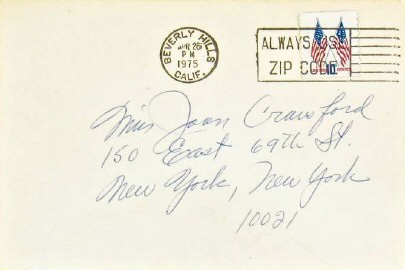 BEVERLY HILLS
APR 26
PM
1975
CALIF.
ALWAYS USE
ZIP CODE
10c
Miss Joan Crawford
150 East 69th St.
New York, New York
10021